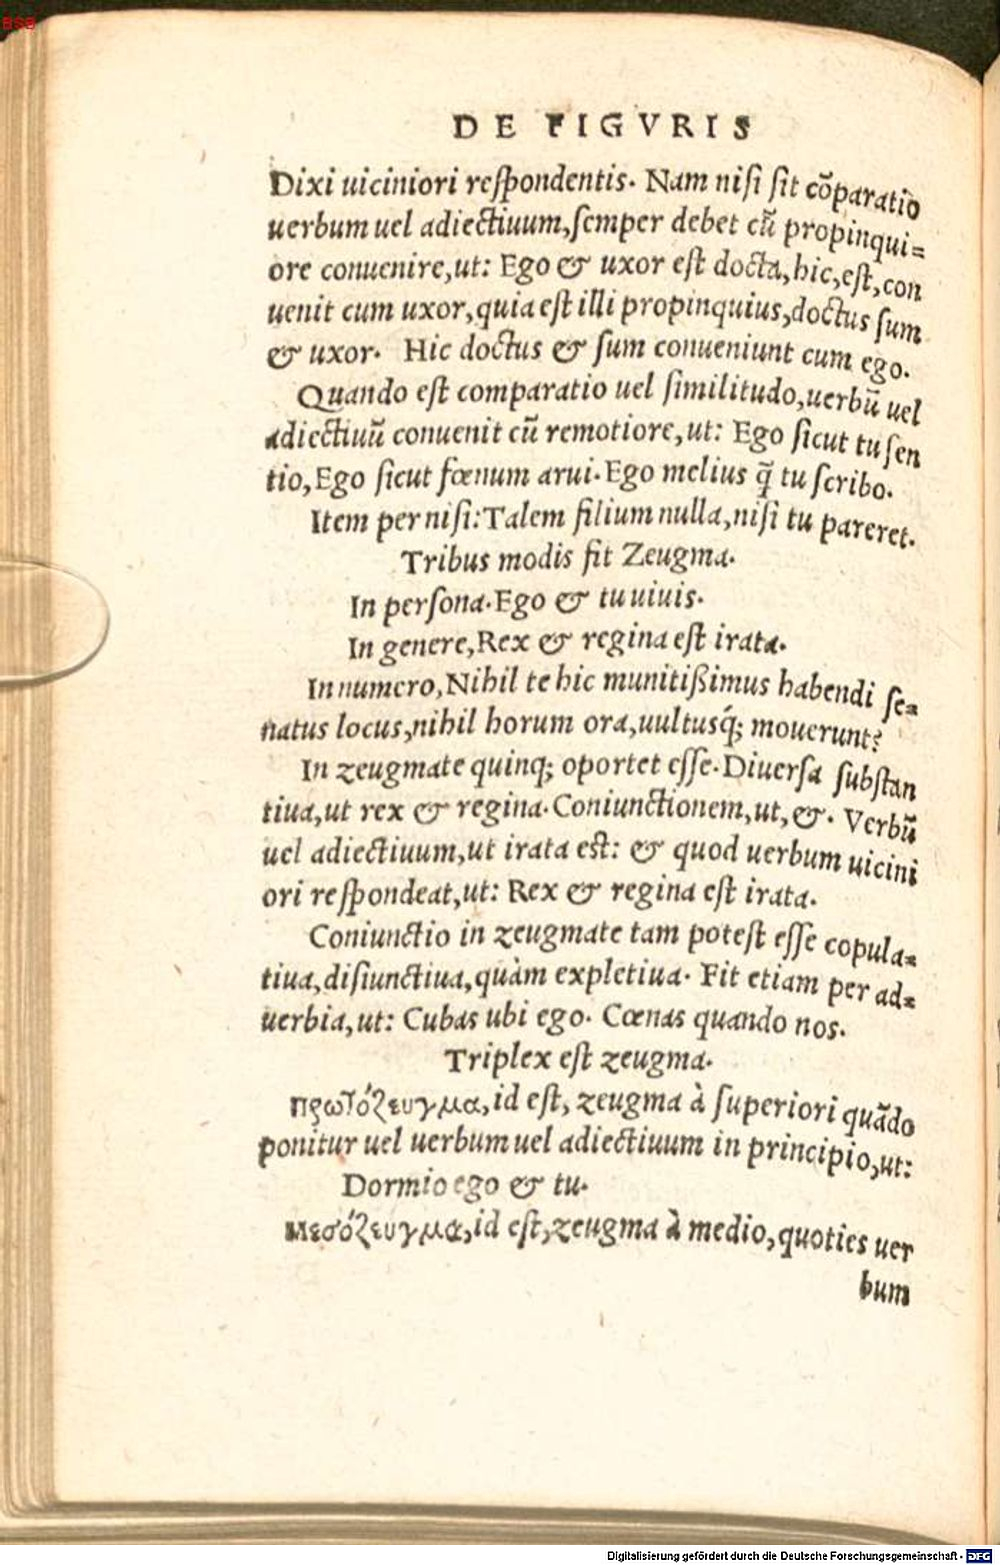 BSB
DE FIGVRIS
Dixi uiciniori reſpondentis. Nam niſi ſit cōparatio
uerbum uel adiectiuum,ſemper debet cū propinqui=
ore conuenire,ut: Ego & uxor eſt docta,hic,eſt,con
uenit cum uxor,quia eſt illi propinquius,doctus ſum
& uxor. Hic doctus & ſum conueniunt cum ego.
Quando eſt comparatio uel ſimilitudo,uerbū uel
adiectiuū conuenit cū remotiore,ut: Ego ſicut tu ſen
tio,Ego ſicut fœnum arui. Ego melius q̃ tu ſcribo.
Item per niſi:Talem filium nulla,niſi tu pareret.
Tribus modis fit Zeugma.
In perſona.Ego & tu uiuis.
In genere,Rex & regina eſt irata.
In numero,Nihil te hic munitißimus habendi ſe=
natus locus,nihil horum ora,uultusq́; mouerunt?
In zeugmate quinq; oportet eſſe.Diuerſa ſubſtan
tiua,ut rex & regina.Coniunctionem,ut,&. Verbū
uel adiectiuum,ut irata eſt: & quod uerbum uicini
ori reſpondeat,ut: Rex & regina eſt irata.
Coniunctio in zeugmate tam poteſt eſſe copula=
tiua,diſiunctiua,quàm expletiua. Fit etiam per ad=
uerbia,ut: Cubas ubi ego. Cœnas quando nos.
Triplex eſt zeugma.
πρωτόζευγμα,id eſt, zeugma à ſuperiori quādo
ponitur uel uerbum uel adiectiuum in principio,ut:
Dormio ego & tu.
μεσόζευγμα,id eſt,zeugma à medio,quoties uer
bum
Digitalisierung gefördert durch die Deutsche Forschungsgemeinschaft - DFG